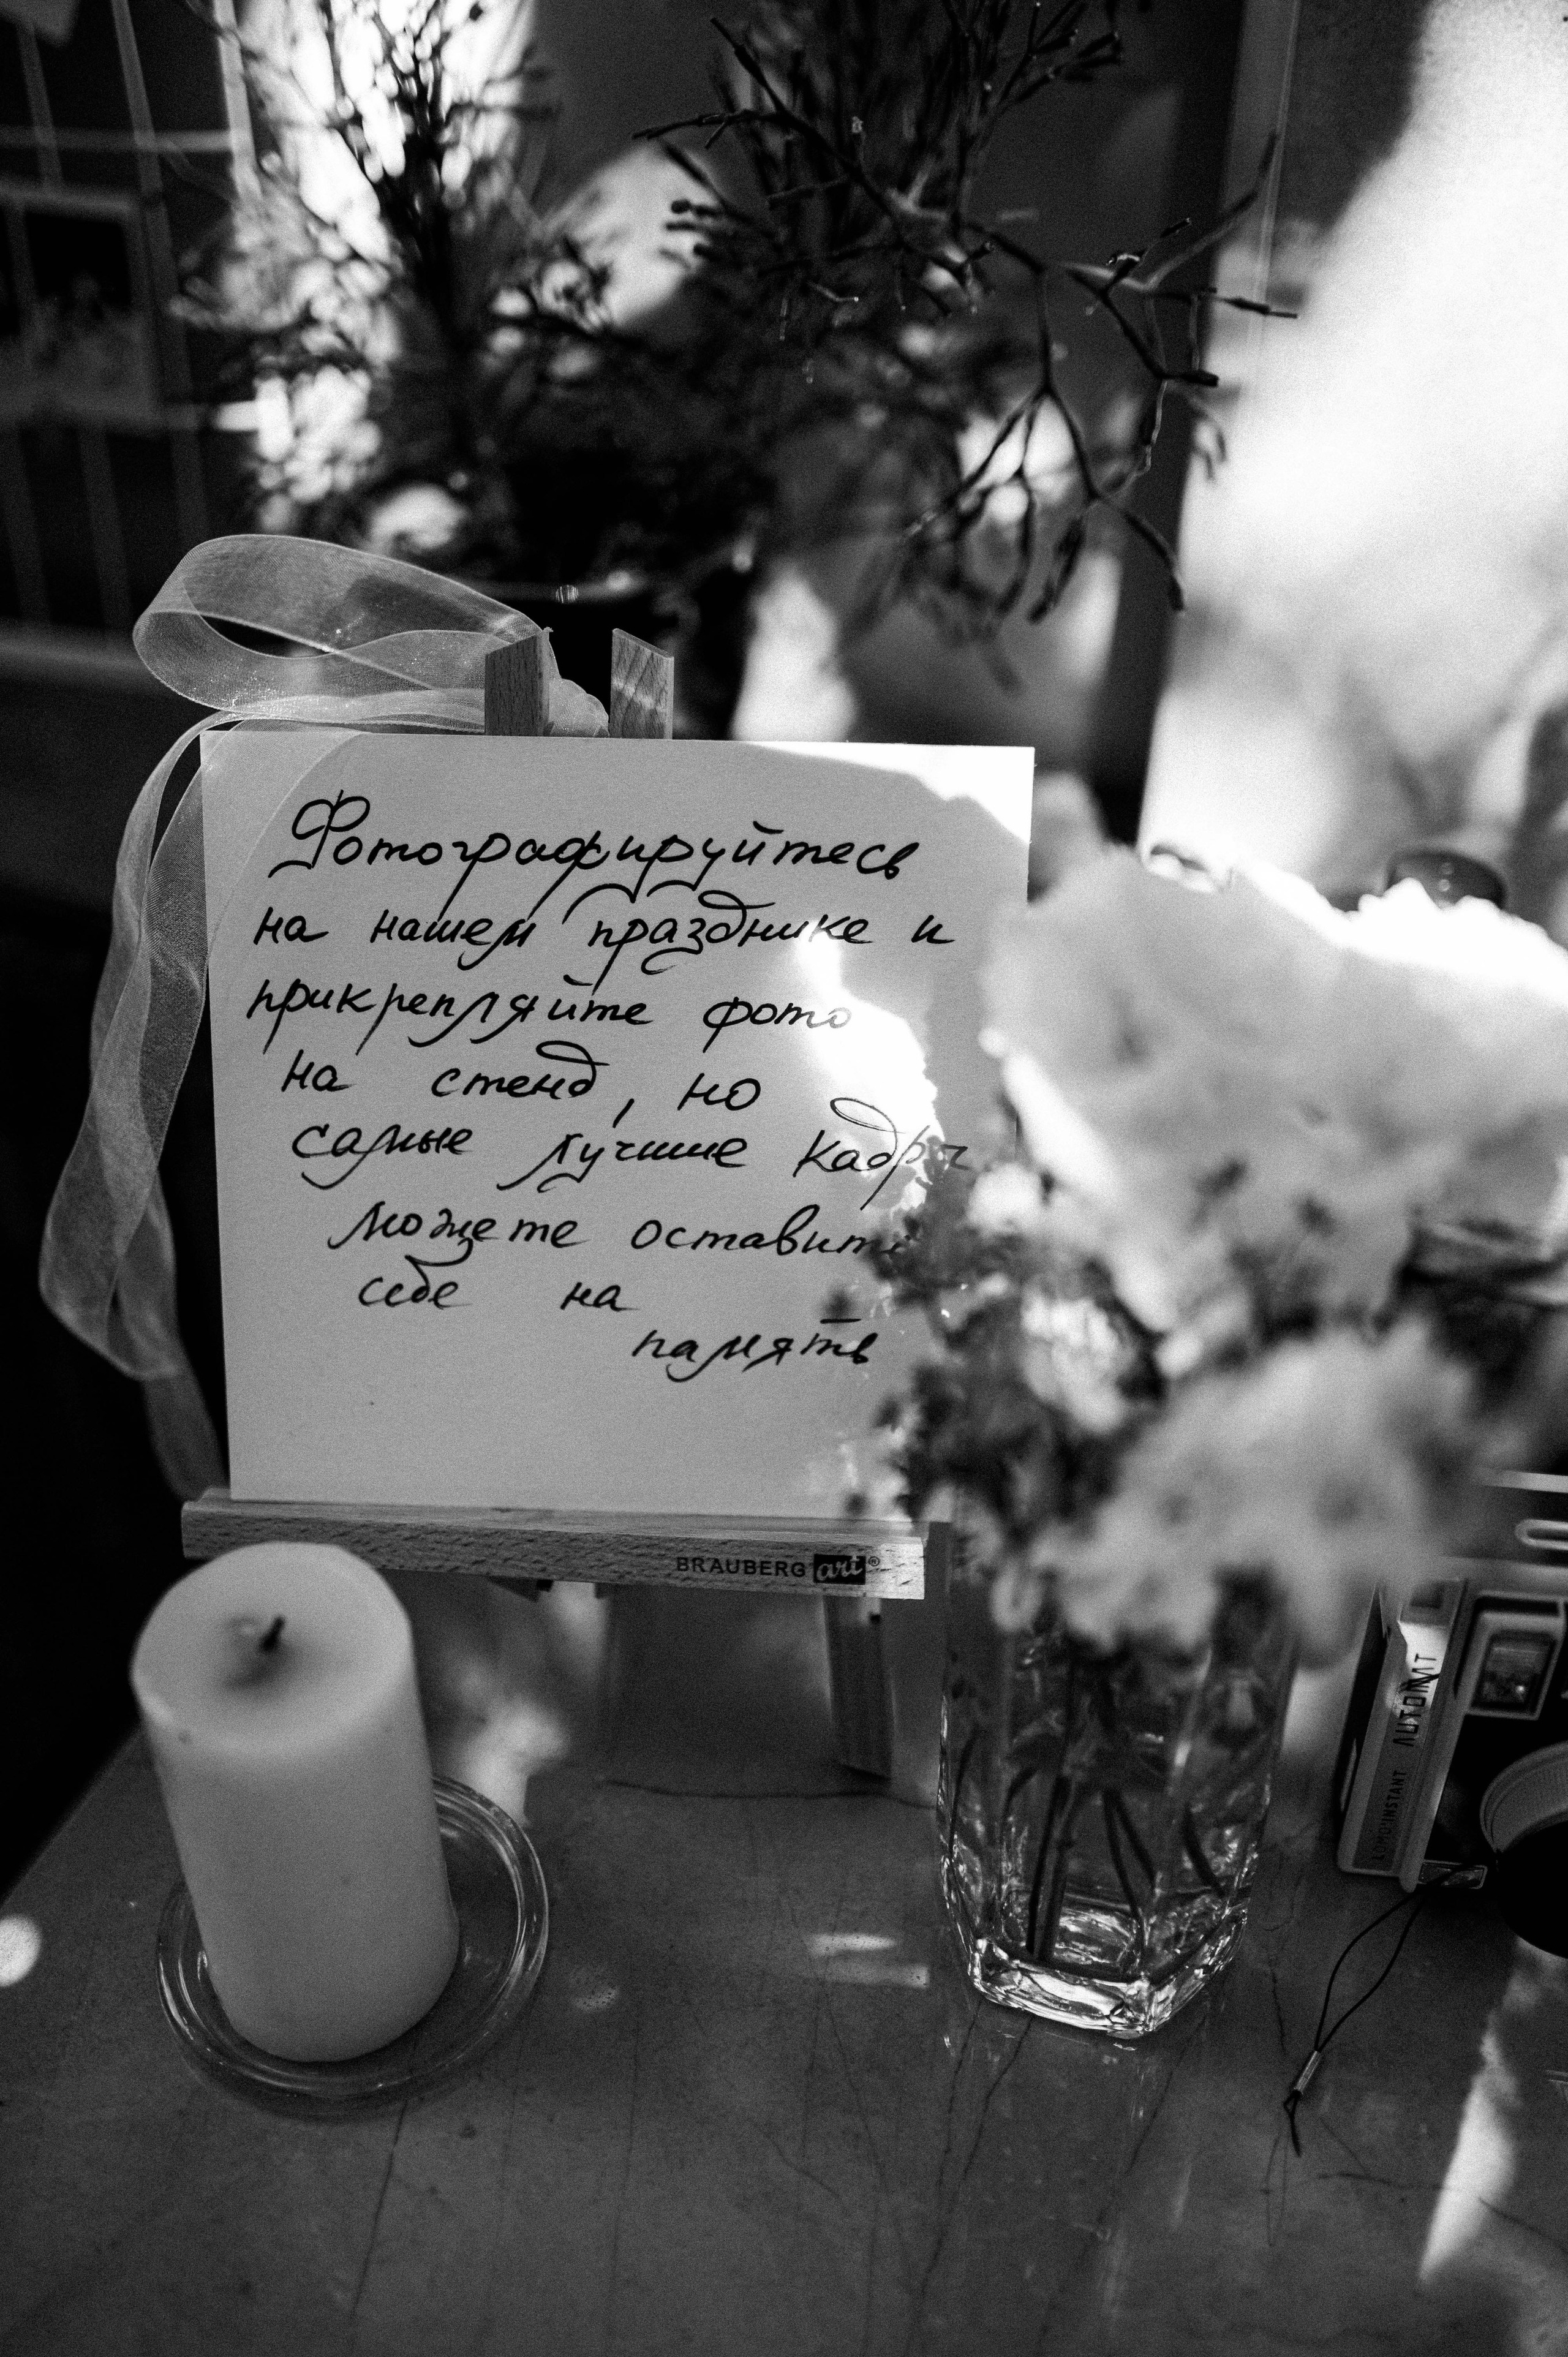 Фотографируйтесь
на нашем празднике и
прикрепляйте фото
на стенд, но
самые лучшие кадры
можете оставить
себе на
память
BRAUBERG art®
LOMO'INSTANT AUTOMAT